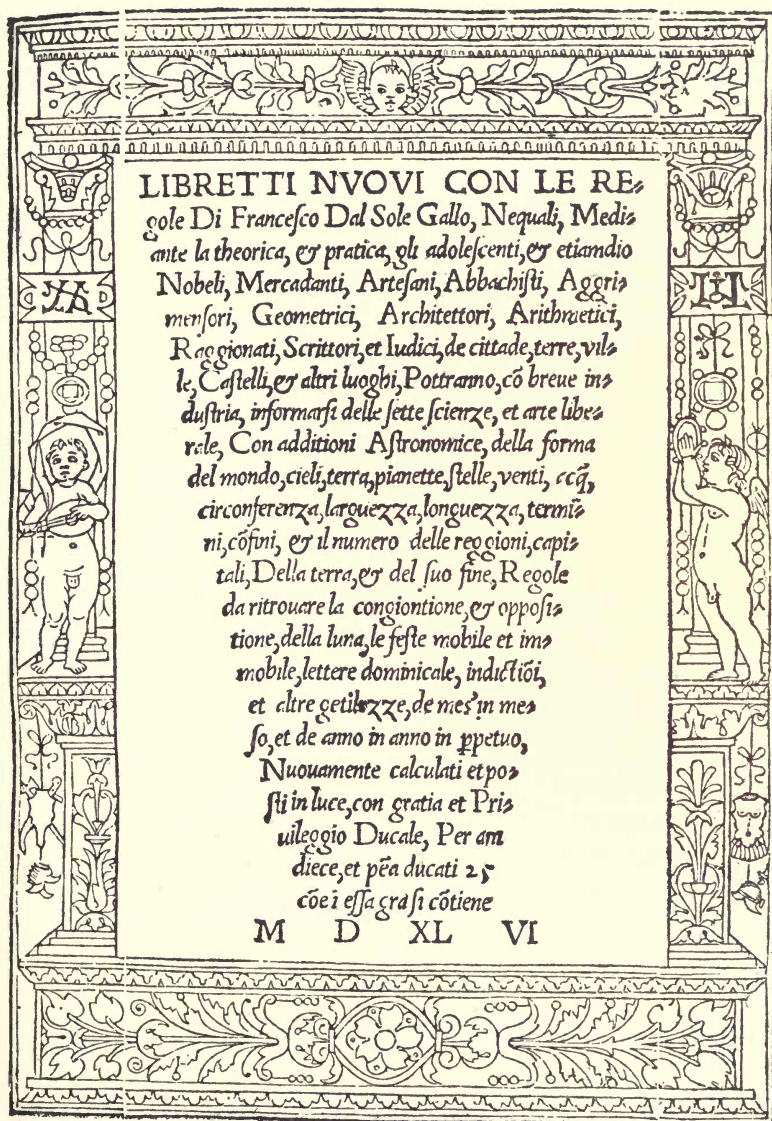 LIBRETTI NVOVI CON LE RE-
gole Di Franceſco Dal Sole Gallo, Nequali, Medi-
ante la theorica, & pratica, gli adoleſcenti, & etiamdio
Nobeli, Mercadanti, Arteſani, Abbachiſti, Aggri-
menſori, Geometrici, Architettori, Arithmetici,
Raggionati, Scrittori, et Iudici, de cittade, terre, vil-
le, Caſtelli, & altri luoghi, Pottranno, cõ breue in-
duſtria, informarſi delle ſette ſcienze, et arte libe-
rale, Con additioni Aſtronomice, della forma
del mondo, cieli, terra, pianette, ſtelle, venti, acq̃,
circonferenza, larguezza, longuezza, termĩ-
ni, cõfini, & il numero delle reggioni, capi-
tali, Della terra, & del ſuo fine, Regole
da ritrouare la congiontione, & oppoſi-
tione, della luna, le feſte mobile et im-
mobile, lettere dominicale, indictiõi,
et altre getilezze, de meſ' in me-
ſo, et de anno in anno in ꝑpetuo,
Nuouamente calculati et po-
ſti in luce, con gratia et Pri-
uileggio Ducale, Per am
diece, et pẽa ducati 25
cõe ĩ eſſa gra ſi cõtiene
M D XL VI